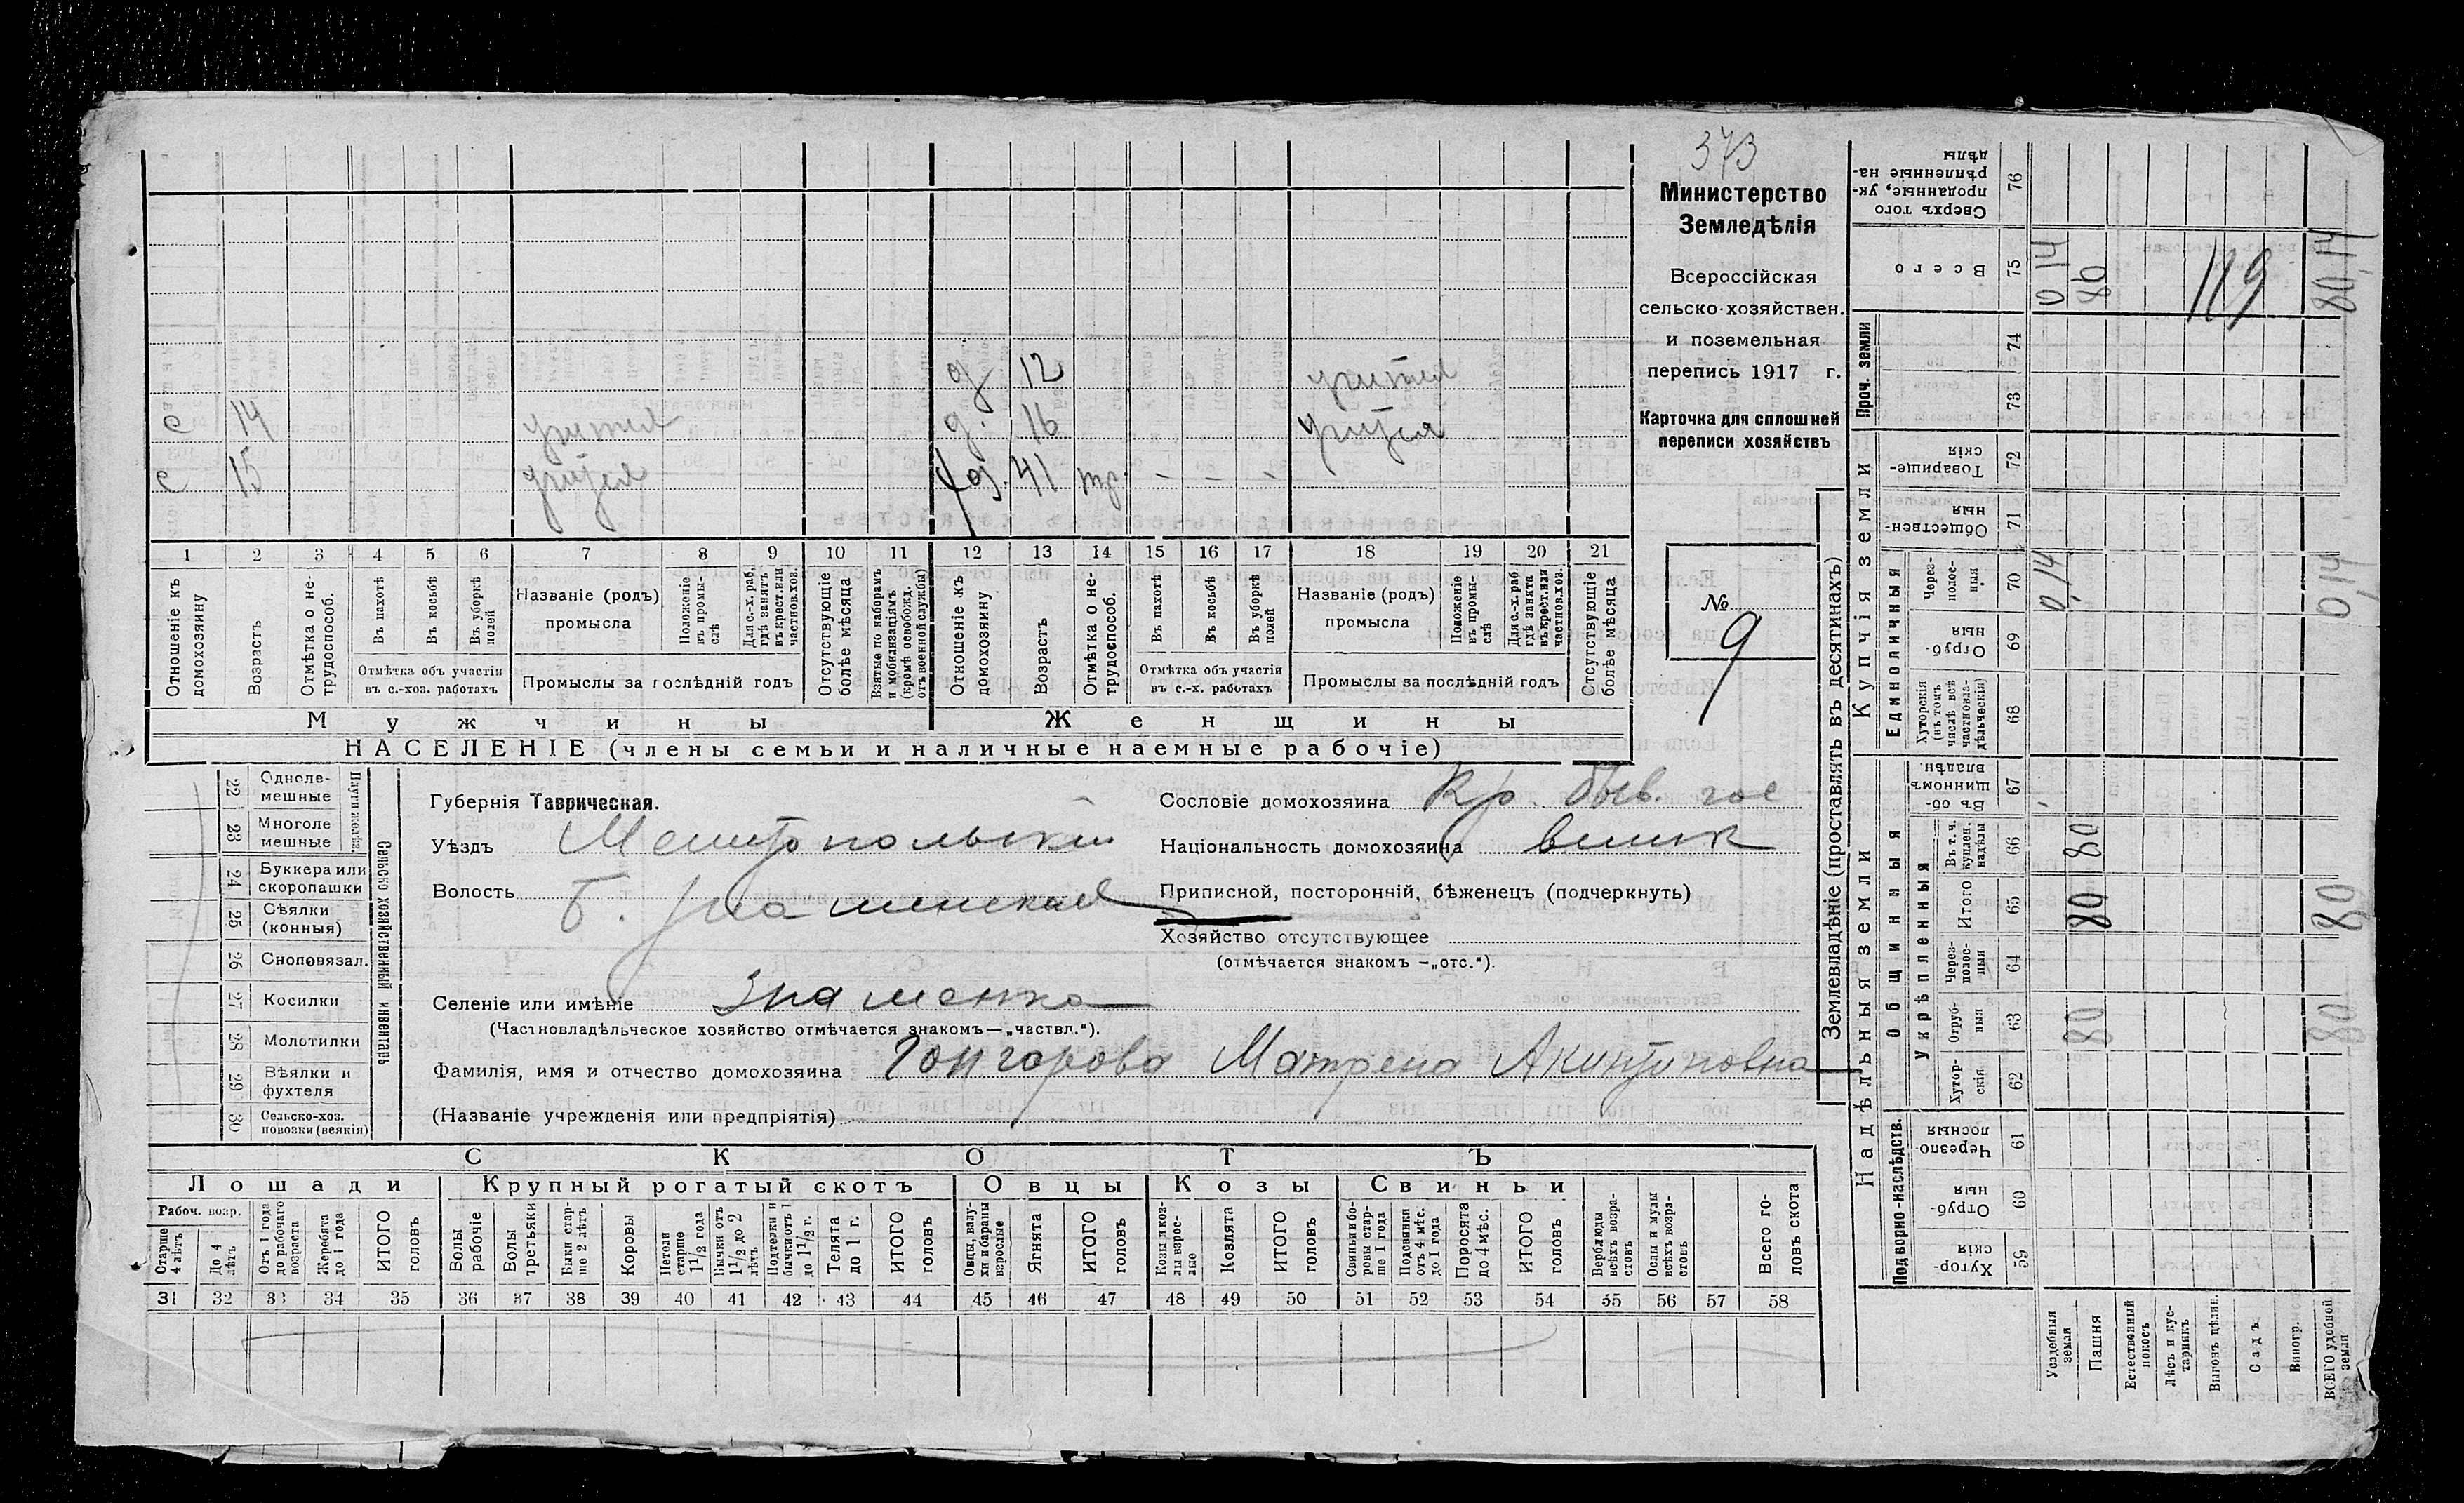 373
Министерство
Земледѣлія
Всероссійская
сельско-хозяйствен.
и поземельная
перепись 1917 г.
Карточка для сплошней
переписи хозяйствъ
№
9
д. 12
с 14 д. 16
с 15 хоз. 41 тр. - - -
1 2 3 4 5 6 7 8 9 10 11 12 13 14 15 16 17 18 19 20 21
Отношеніе къ домохозяину
Возрастъ
Отмѣтка о не-трудоспособ.
Въ пахотѣ
Въ косьбѣ
Въ уборкѣ полей
Отмѣтка объ участіи въ с.-хоз. работахъ
Названіе (родъ) промысла
Положеніе въ промы-слѣ
Для с.-х. раб. гдѣ занятъ въ крест. или частнов. хоз.
Промыслы за послѣдній годъ
Отсутствующіе болѣе мѣсяца
Взятые по наборамъ и мобилизаціямъ (кромѣ освобожд. отъ военной службы)
Отношеніе къ домохозяину
Возрастъ
Отмѣтка о не-трудоспособ.
Въ пахотѣ
Въ косьбѣ
Въ уборкѣ полей
Отмѣтка объ участіи въ с.-х. работахъ
Названіе (родъ) промысла
Положеніе въ промы-слѣ
Для с.-х. раб. гдѣ занята въ крест. или частнов. хоз.
Промыслы за послѣдній годъ
Отсутствующіе болѣе мѣсяца
Мужчины Женщины
НАСЕЛЕНІЕ (члены семьи и наличные наемные рабочіе)
22 Одноле-мешные
23 Многоле мешные
Плуги желѣзн.
24 Буккера или скоропашки
25 Сѣялки (конныя)
26 Сноповязал.
27 Косилки
28 Молотилки
29 Вѣялки и фухтеля
30 Сельско-хоз. повозки (всякія)
Сельско хозяйственный инвентарь
Губернія Таврическая.
Уѣздъ Мелитопольскій
Волость Б. Знаменская
Сословіе домохозяина Кр. быв. гос
Національность домохозяина велик
Приписной, посторонній, бѣженецъ (подчеркнуть)
Хозяйство отсутствующее
(отмѣчается знакомъ —„отс.“).
Селеніе или имѣніе Знаменка
(Частновладѣльческое хозяйство отмѣчается знакомъ—„частвл.“).
Фамилія, имя и отчество домохозяина Гончарова Матрена Акинфиовна
(Названіе учрежденія или предпріятія)
СКОТЪ
Лошади Крупный рогатый скотъ Овцы Козы Свиньи
Рабоч. возр.
Старше 4 лѣтъ
До 4 лѣтъ
Отъ 1 года до рабочаго возраста
Жеребята до 1 года
ИТОГО головъ
Волы рабочіе
Волы третьяки
Быки стар-ше 2 лѣтъ
Коровы
Нетели старше 1 1/2 года
Бычки отъ 1 1/2 до 2 лѣтъ
Подтелки и бычки отъ 1 до 1 1/2 г.
Телята до 1 г.
ИТОГО головъ
Овцы, валу-хи и бараны взрослые
Ягнята
ИТОГО головъ
Козы и коз-лы взрос-лые
Козлята
ИТОГО головъ
Свиньи и бо-ровы стар-ше 1 года
Подсвинки отъ 4 мѣс. до 1 года
Поросята до 4 мѣс.
ИТОГО головъ
Верблюды всѣхъ возра-стовъ
Ослы и мулы всѣхъ возра-стовъ
Всего го-ловъ скота
31 32 33 34 35 36 37 38 39 40 41 42 43 44 45 46 47 48 49 50 51 52 53 54 55 56 57 58
Землевладѣніе (проставлять въ десятинахъ)
Надѣльныя земли Купчія земли Проч. земли
Подворно-наслѣдств.
Общинныя
Укрѣпленныя
Единоличныя
Сверхъ того проданные, ук-рѣпленные на-дѣлы 76
Всего 75 0 14 80 119 80,14
74
73
Товарище-скія 72
Обществен-ныя 71
Через-полос-ныя 70 0,14 0,14
Отруб-ныя 69
Хуторскія (въ томъ числѣ всѣ частновла-дѣльческія) 68
Въ об-щинномъ владѣн. 67
Въ т. ч. куплен. надѣлы 66 80
Итого 65 80 80
Через-полос-ныя 64
Отруб-ныя 63 80 80
Хутор-скія 62
Черезпо-лосныя 61
Отруб-ныя 60
Хутор-скія 59
Усадебныя земли
Пашня
Естественный покосъ
Лѣсъ и кус-тарникъ
Выгонъ цѣлин.
Садъ
Виногр.
ВСЕГО удобной земли